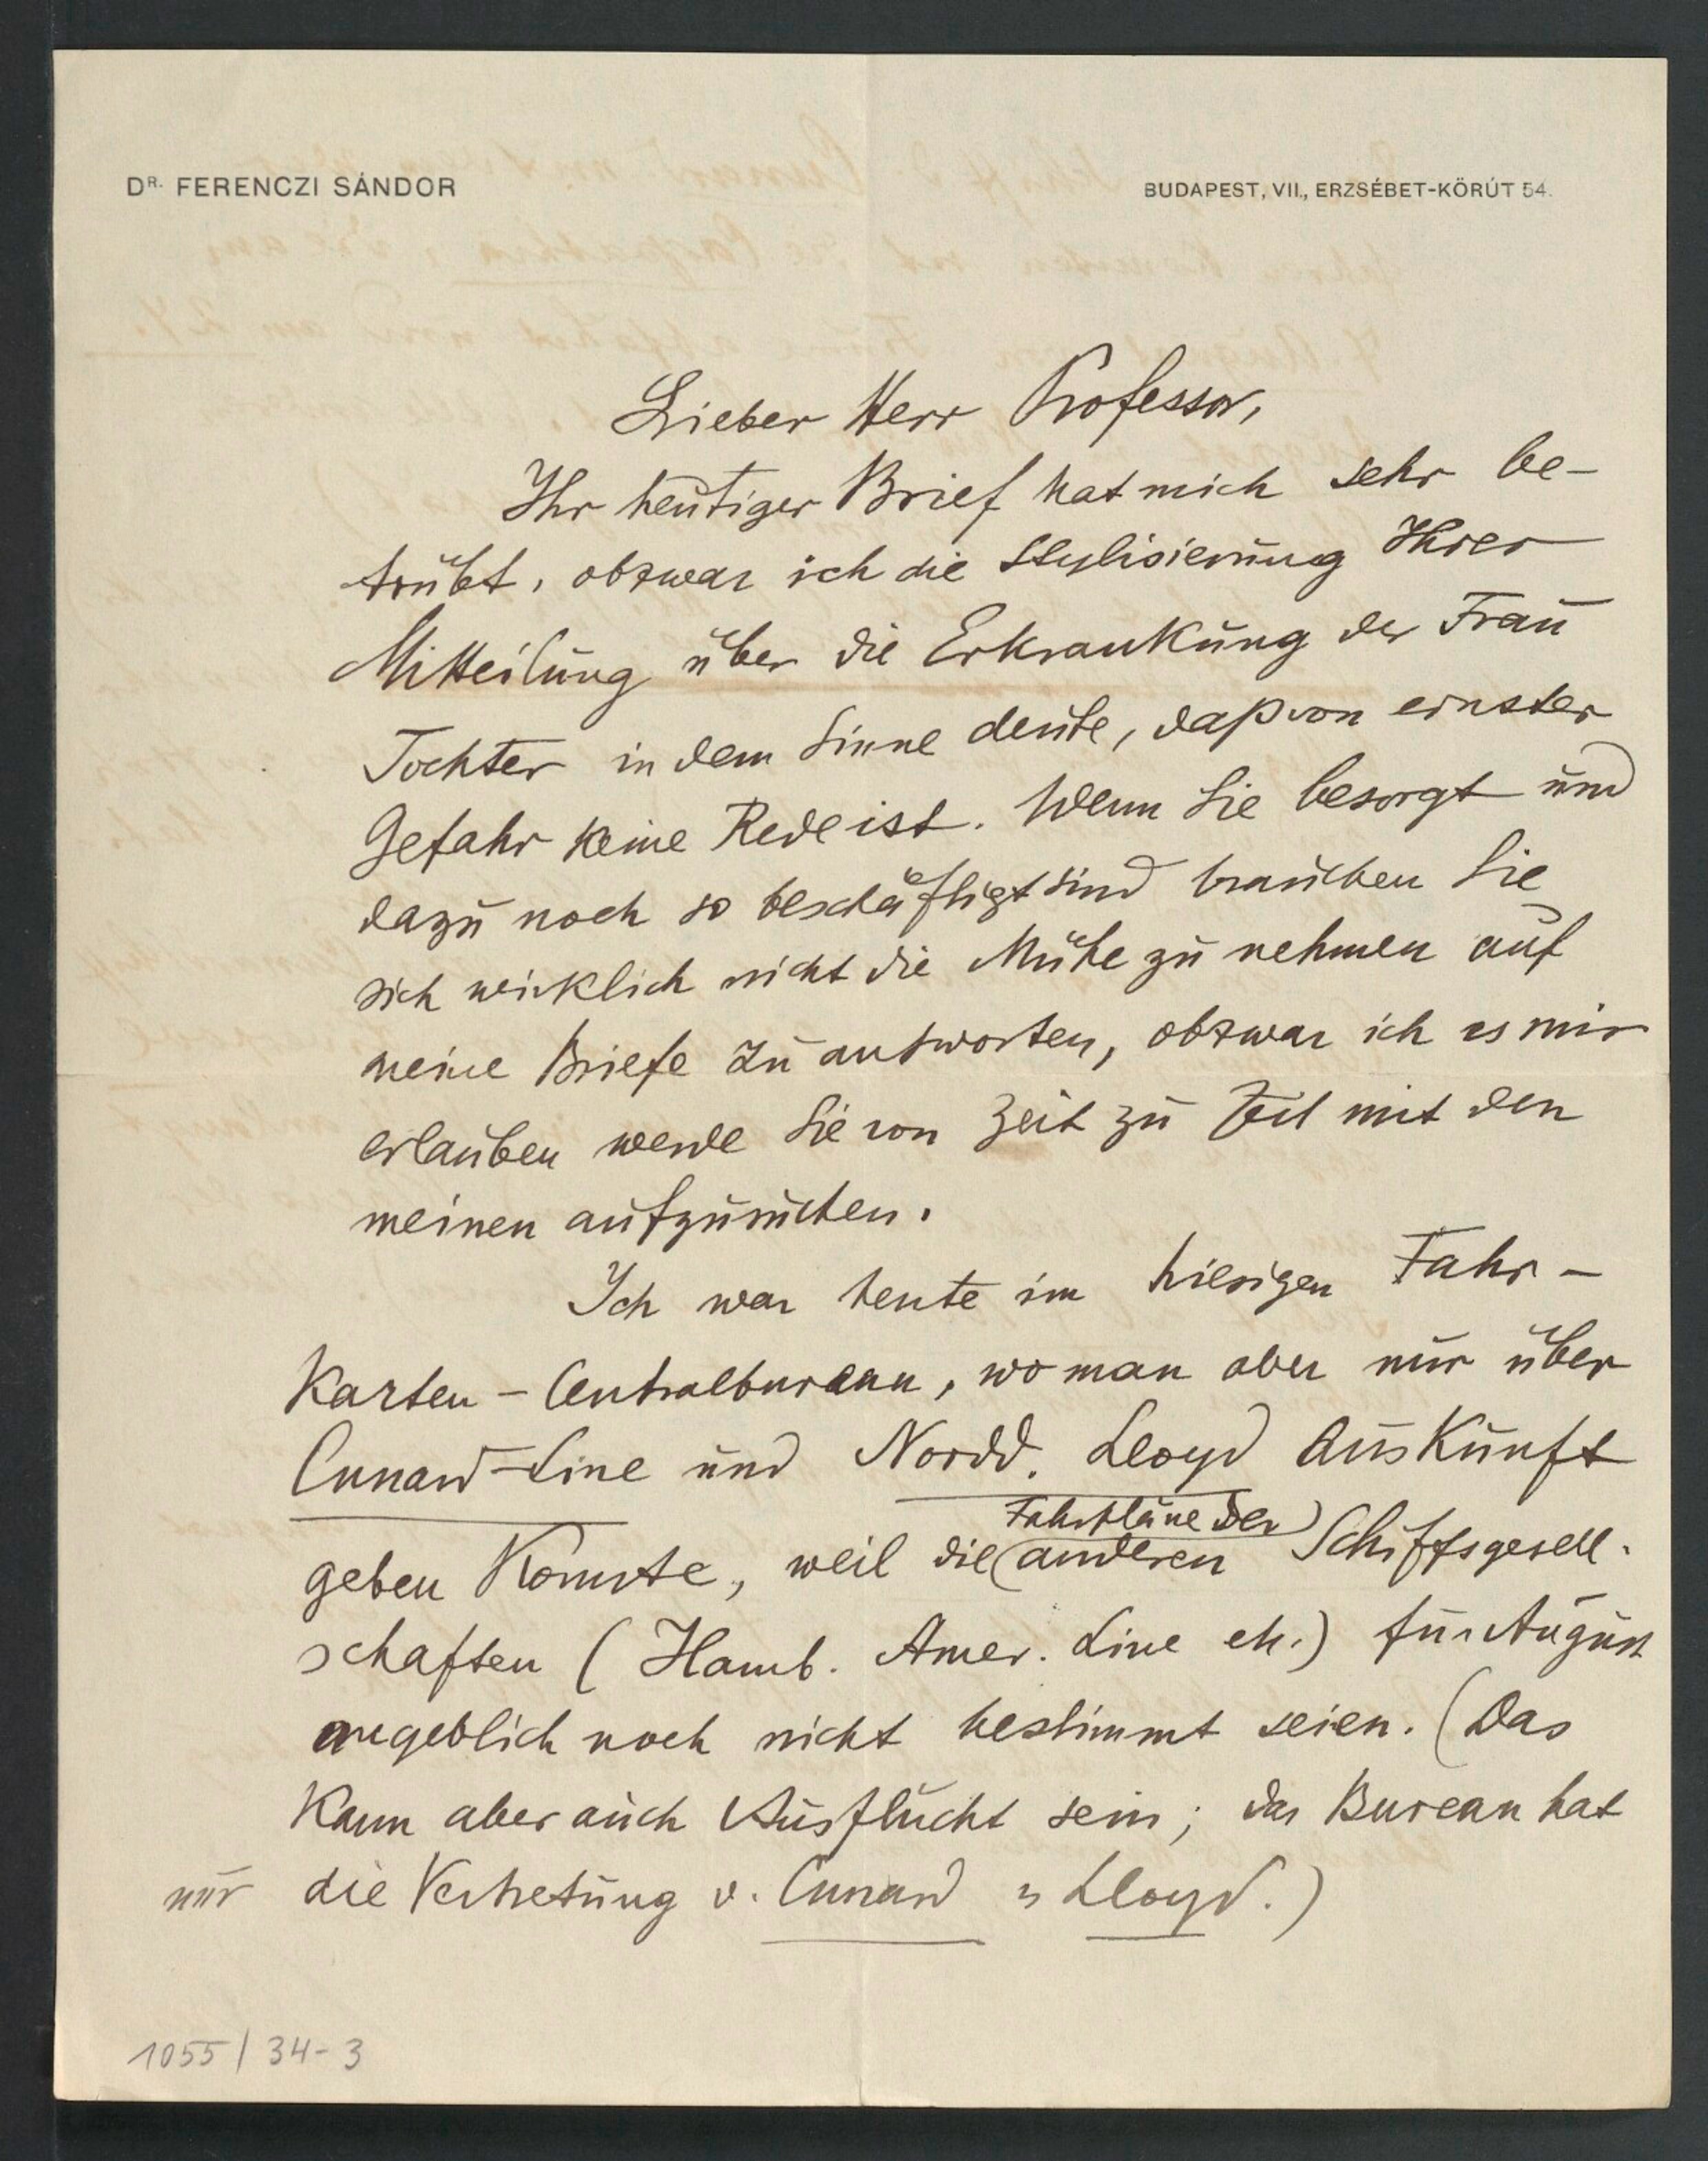 DR. FERENCZI SÁNDOR
BUDAPEST, VII., ERZSÉBET-KÖRÚT 54.
Lieber Herr Professor,
Ihr heutiger Brief hat mich sehr be-
trübt, obzwar ich die Stylisierung Ihrer
Mitteilung über die Erkrankung der Frau
Tochter in dem Sinne deute, daß von ernster
Gefahr keine Rede ist. Wenn Sie besorgt und
dazu noch so beschäftigt sind brauchen Sie
sich wirklich nicht die Mühe zu nehmen auf
meine Briefe zu antworten, obzwar ich es mir
erlauben werde Sie von Zeit zu Zeit mit den
meinen aufzusuchen.
Ich war heute im hiesigen Fahr-
Karten-Centralbureau, wo man aber nur über
Cunard-Line und Nordd. Lloyd Auskunft
geben konnte, weil die Fahrpläne der anderen Schiffsgesell-
schaften (Hamb. Amer. Line etc.) für August
angeblich noch nicht bestimmt seien. (Das
kann aber auch Ausflucht sein; das Bureau hat
nur die Vertretung v. Cunard u Lloyd.)
1055/34-3